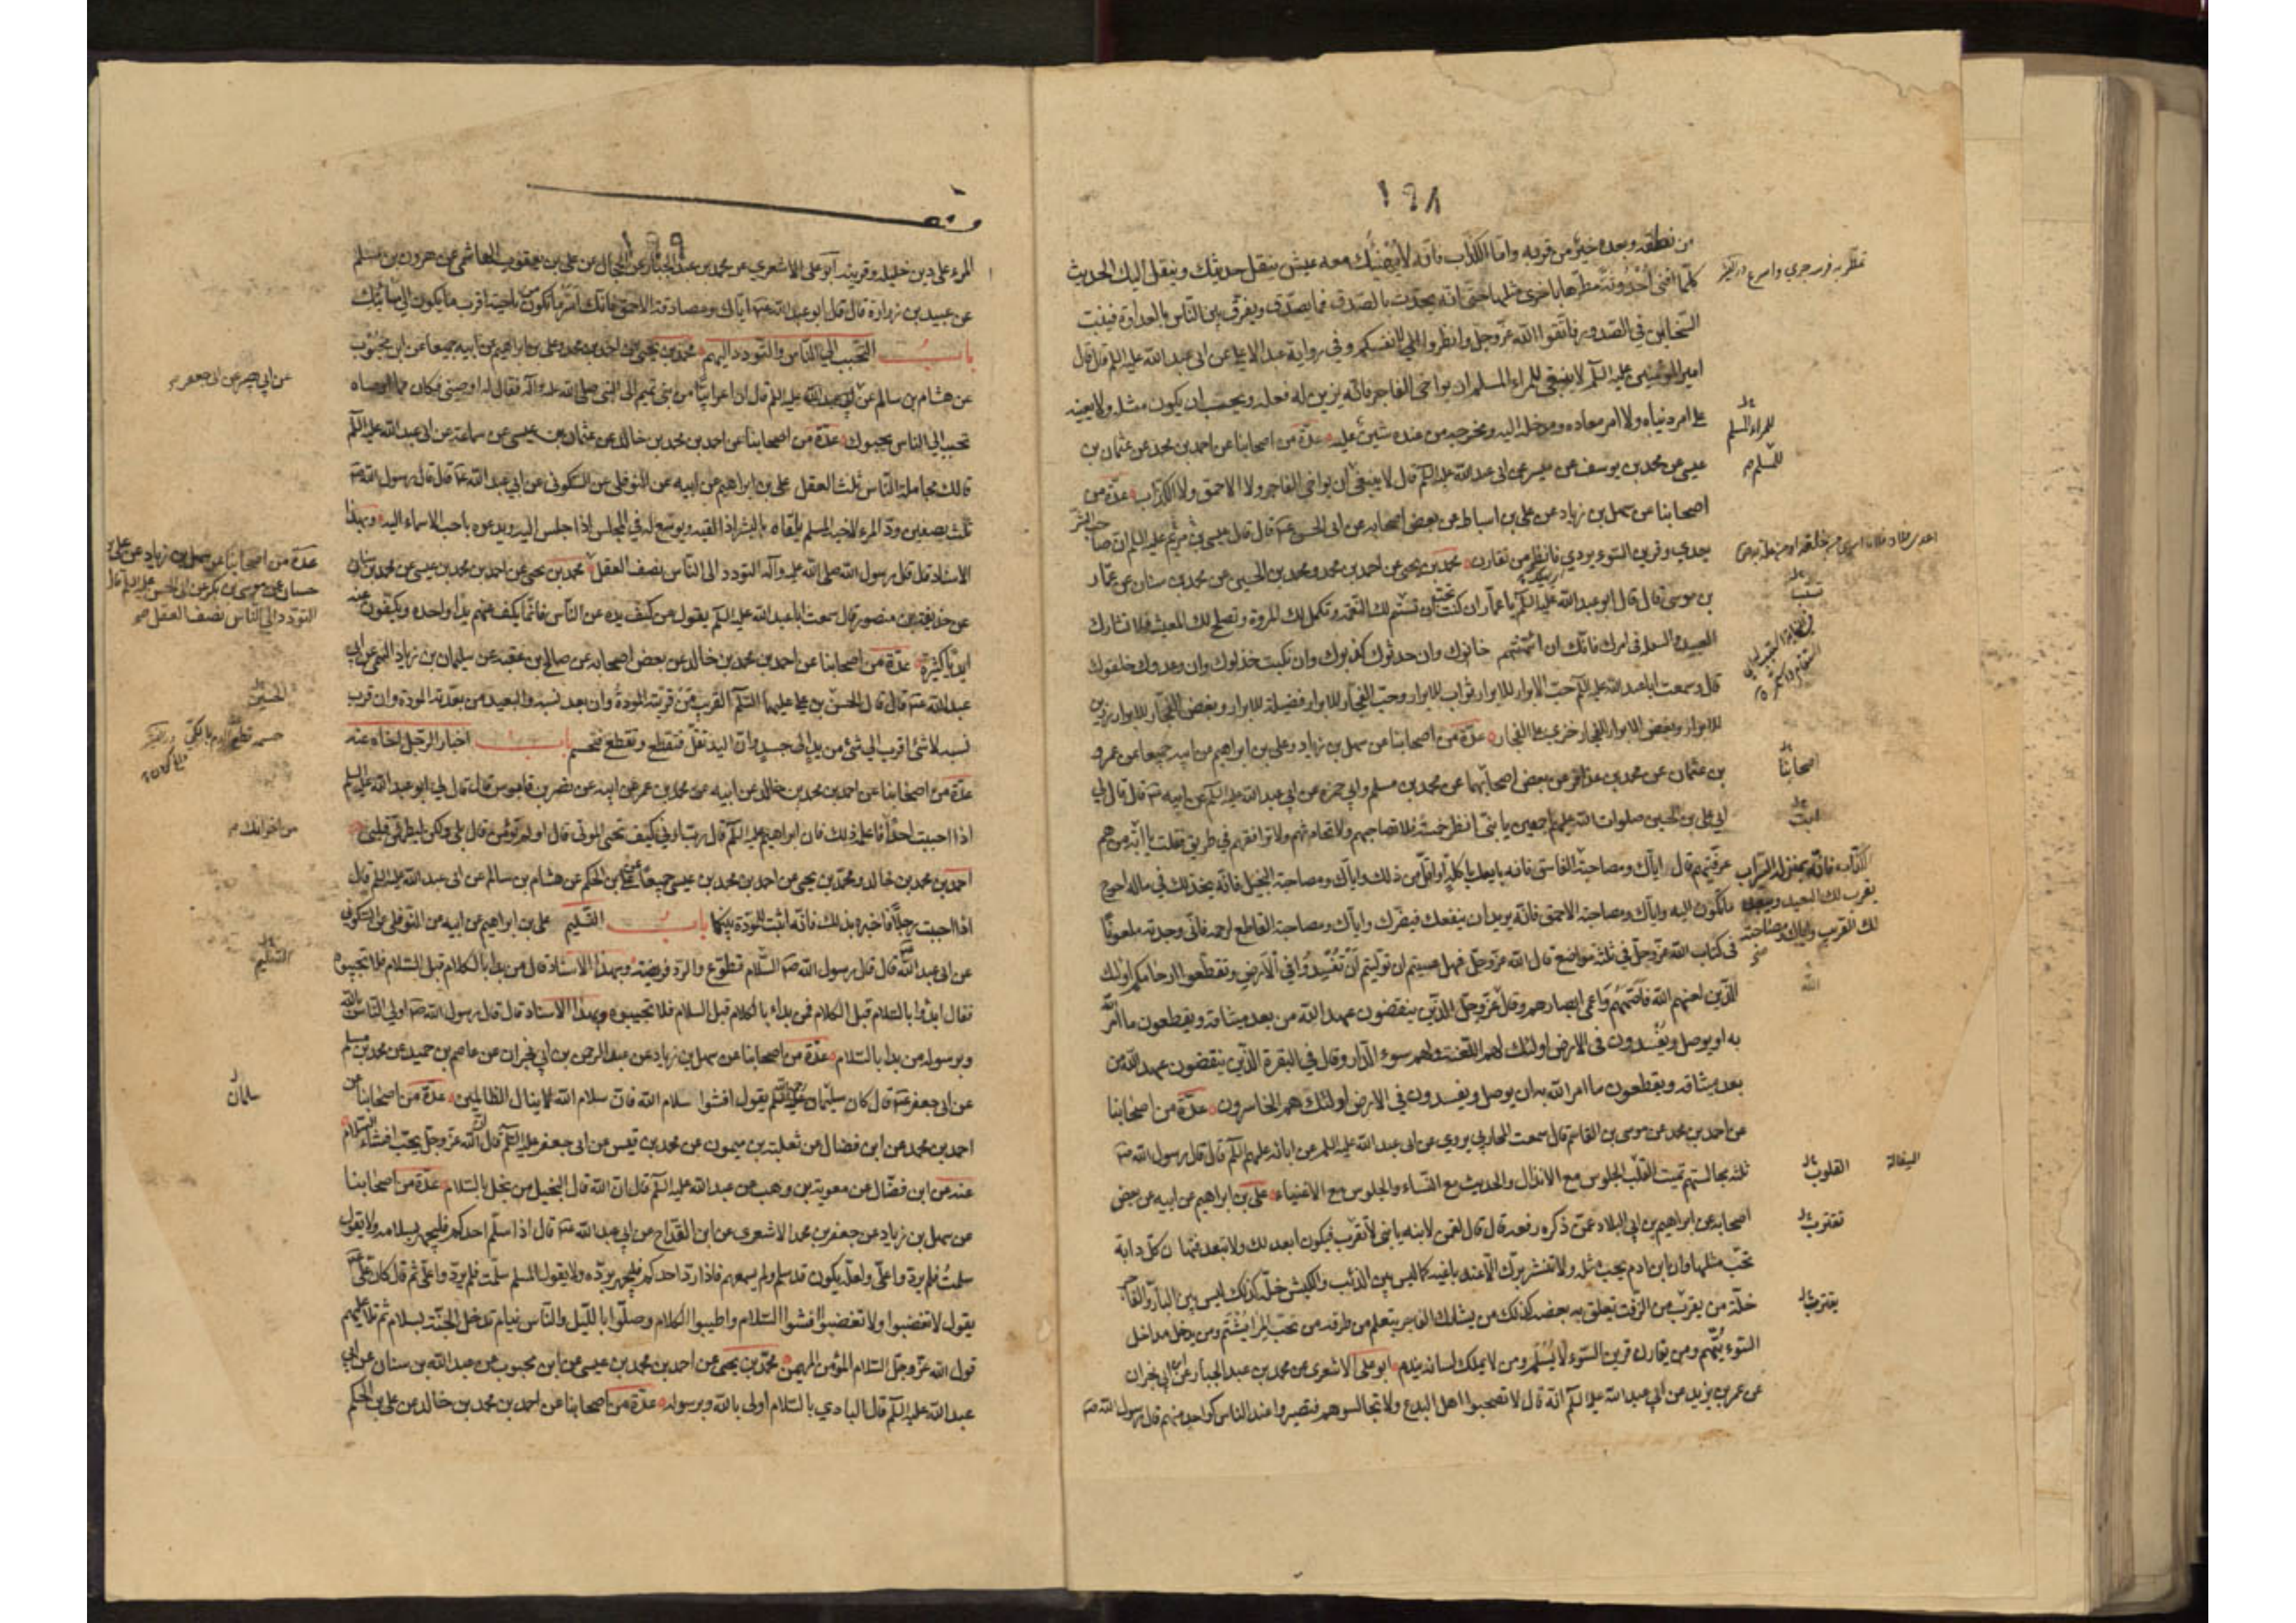 ١٩٨
من نطقه وبعده خير من قربه واما الكذاب فانه لا يهنئك معه عيش ينقل حديثك وينقل اليك الحديث
كلما افنى احدوثة مطرها باخرى مثلها حتى انه يحدث بالصدق فما يصدق ويفرق بين الناس بالعداوة فينبت
السخائم في الصدور فاتقوا الله عز وجل وانظروا لانفسكم وفي رواية عبد الاعلى عن ابى عبد الله عليه السلم قال قال
امير المؤمنين عليه السلم لا ينبغي للمراء المسلم ان يواخي الفاجر فانه يزين له فعله ويحب ان يكون مثله ولا يعينه
على امر دنياه ولا امر معاده ومدخله اليه ومخرجه من عنده شين عليه عدة من اصحابنا عن احمد بن محمد عن عثمان بن
عيسى عن محمد بن يوسف عن ميسر عن ابى عبد الله عليه السلم قال لا ينبغي ان يواخي الفاجر ولا الاحمق ولا الكذاب عدة من
اصحابنا عن سهل بن زياد عن علي بن اسباط عن بعض اصحابه عن ابى الحسن قال قال عيسى بن مريم عليه السلم ان صاحب الشر
يعدي وقرين السوء يردي فانظر من تقارن محمد بن يحيى عن احمد بن محمد ومحمد بن الحسين عن محمد بن سنان عن عمار
بن موسى قال قال ابو عبد الله عليه السلم يا عمار ان كنت تحب ان تستتم لك النعمة وتكمل لك المروة وتصلح لك المعيشة فلا تشارك
العبيد والسفلة في امرك فانك ان ائتمنتهم خانوك وان حدثوك كذبوك وان نكبت خذلوك وان وعدوك خلفوك
قال وسمعت ابا عبد الله عليه السلم حب الابرار للابرار ثواب للابرار وحب الفجار للابرار فضيلة للابرار وبغض الفجار للابرار زين
للابرار وبغض الابرار للفجار خزي على الفجار عدة من اصحابنا عن سهل بن زياد وعلي بن ابراهيم عن ابيه جميعا عن عمرو
بن عثمان عن محمد بن عذافر عن بعض اصحابهما عن محمد بن مسلم وابي حمزة عن ابي عبد الله عليه السلم عن ابيه قال قال لي
ابي علي بن الحسين صلوات الله عليهم اجمعين يا بني انظر خمسة فلا تصاحبهم ولا تحادثهم ولا ترافقهم في طريق فقلت يا ابه من هم
عرفنيهم قال اياك ومصاحبة الفاسق فانه بايعك باكلة او اقل من ذلك واياك ومصاحبة البخيل فانه يخذلك في ماله احوج
ما تكون اليه واياك ومصاحبة الاحمق فانه يريد ان ينفعك فيضرك واياك ومصاحبة القاطع لرحمه فاني وجدته ملعونا
في كتاب الله عز وجل في ثلثة مواضع قال الله عز وجل فهل عسيتم ان توليتم ان تفسدوا في الارض وتقطعوا ارحامكم اولئك
الذين لعنهم الله فاصمهم واعمى ابصارهم وقال عز وجل الذين ينقضون عهد الله من بعد ميثاقه ويقطعون ما امر الله
به ان يوصل ويفسدون في الارض اولئك لهم اللعنة ولهم سوء الدار وقال في البقرة الذين ينقضون عهد الله من
بعد ميثاقه ويقطعون ما امر الله به ان يوصل ويفسدون في الارض اولئك هم الخاسرون عدة من اصحابنا
عن احمد بن محمد عن موسى بن القاسم قال سمعت المحاربي يروي عن ابى عبد الله عليه السلم عن ابائه عليهم السلم قال قال رسول الله
ثلثة مجالستهم تميت القلب الجلوس مع الانذال والحديث مع النساء والجلوس مع الاغنياء علي بن ابراهيم عن ابيه عن بعض
اصحابه عن ابراهيم بن ابي البلاد عمن ذكره رفعه قال قال لقمن لابنه يا بني لا تقرب فيكون ابعد لك ولا تبعد فتهان كل دابة
تحب مثلها وان ابن ادم يحب مثله ولا تنشر بزك الا عند باغيه كما ليس بين الذئب والكبش خلة كذلك ليس بين البار والفاجر
خلة من يقرب من الزفت يعلق به بعضه كذلك من يشارك الفاجر يتعلم من طرقه من يحب المراء يشتم ومن يدخل مداخل
السوء يتهم ومن يقارن قرين السوء لا يسلم ومن لا يملك لسانه يندم ابو علي الاشعري عن محمد بن عبد الجبار عن ابن ابي نجران
عن عمر بن يزيد عن ابي عبد الله عليه السلم انه قال لا تصحبوا اهل البدع ولا تجالسوهم فتصيروا عند الناس كواحد منهم قال رسول الله
للمراء المسلم
للمسلم
اصحابنا
ابت
الكذاب فانه بمنزلة السراب
يقرب لك البعيد ويبعد
لك القريب واياك ومصاحبة
الله
القلوب
تقترب
يقترب
١٩٩
المرء على دين خليله وقرينه ابو علي الاشعري عن محمد بن عبد الجبار عن الحجال عن علي بن يعقوب الهاشمي عن هرون بن مسلم
عن عبيد بن زرارة قال قال ابو عبد الله اياك ومصادقة الاحمق فانك اسر ما تكون من ناحيته اقرب ما يكون الى مسائتك
باب التحبب الى الناس والتودد اليهم محمد بن يحيى عن احمد بن محمد وعلي بن ابراهيم عن ابيه جميعا عن ابن محبوب
عن هشام بن سالم عن ابي عبد الله عليه السلم قال ان اعرابيا من بني تميم اتى النبي صلى الله عليه وآله فقال له اوصني فكان مما اوصاه
تحبب الى الناس يحبوك عدة من اصحابنا عن احمد بن محمد بن خالد عن عثمان بن عيسى عن سماعة عن ابى عبد الله عليه السلم
قال مجاملة الناس ثلث العقل علي بن ابراهيم عن ابيه عن النوفلي عن السكوني عن ابي عبد الله قال قال رسول الله
ثلث يصفين ود المرء لاخيه المسلم يلقاه بالبشر اذا لقيه ويوسع له في المجلس اذا جلس اليه ويدعوه باحب الاسماء اليه وبهذا
الاسناد قال قال رسول الله صلى الله عليه وآله التودد الى الناس نصف العقل محمد بن يحيى عن احمد بن محمد بن عيسى عن محمد بن سنان
عن حذيفة بن منصور قال سمعت ابا عبد الله عليه السلم يقول من كف يده عن الناس فانما يكف عنهم يدا واحدة ويكفون عنه
ايديا كثيرة عدة من اصحابنا عن احمد بن محمد بن خالد عن بعض اصحابه عن صالح بن عقبة عن سليمان بن زياد التميمي عن ابي
عبد الله قال قال الحسن بن علي عليهما السلم القريب من قربته المودة وان بعد نسبه والبعيد من بعدته المودة وان قرب
نسبه لا شئ اقرب الى شئ من يد الى جسد وان اليد تغل فتقطع وتقطع فتحسم باب اخبار الرجل اخاه بحبه
عدة من اصحابنا عن احمد بن محمد بن خالد عن ابيه عن محمد بن عمر عن ابيه عن نصر بن قابوس قال قال لي ابو عبد الله عليه السلم
اذا احببت احدا فاعلمه ذلك فان ابراهيم عليه السلم قال رب ارني كيف تحيي الموتى قال اولم تؤمن قال بلى ولكن ليطمئن قلبي
احمد بن محمد بن خالد ومحمد بن يحيى عن احمد بن محمد بن عيسى جميعا عن علي بن الحكم عن هشام بن سالم عن ابى عبد الله عليه السلم قال
اذا احببت رجلا فاخبره بذلك فانه اثبت للمودة بينكما باب التسليم علي بن ابراهيم عن ابيه عن النوفلي عن السكوني
عن ابى عبد الله قال قال رسول الله السلام تطوع والرد فريضة وبهذا الاسناد قال من بدا بالكلام قبل السلام فلا تجيبوه
فقال ابدؤا بالسلام قبل الكلام فمن بداء بالكلام قبل السلام فلا تجيبوه وبهذا الاسناد قال قال رسول الله اولى الناس بالله
وبرسوله من بدا بالسلام عدة من اصحابنا عن سهل بن زياد عن عبد الرحمن بن ابي نجران عن عاصم بن حميد عن محمد بن مسلم
عن ابى جعفر قال كان سليمان يقول افشوا سلام الله فان سلام الله لا ينال الظالمين عدة من اصحابنا عن
احمد بن محمد عن ابن فضال عن ثعلبة بن ميمون عن محمد بن قيس عن ابى جعفر عليه السلم قال ان الله عز وجل يحب افشاء السلام
عنه عن ابن فضال عن معوية بن وهب عن عبد الله عليه السلم قال ان الله قال البخيل من يبخل بالسلام عدة من اصحابنا
عن سهل بن زياد عن جعفر بن محمد الاشعري عن ابن القداح عن ابي عبد الله قال اذا سلم احدكم فليجهر بسلامه ولا يقول
سلمت فلم يردوا علي ولعله يكون قد سلم ولم يسمعهم فاذا رد احدكم فليجهر برده ولا يقول المسلم سلمت فلم يردوا علي ثم قال كان علي
يقول لا تغضبوا ولا تغضبوا افشوا السلام واطيبوا الكلام وصلوا بالليل والناس نيام تدخل الجنة بسلام ثم تلا عليهم
قول الله عز وجل السلام المؤمن المهيمن محمد بن يحيى عن احمد بن محمد بن عيسى عن ابن محبوب عن عبد الله بن سنان عن ابي
عبد الله عليه السلم قال البادي بالسلام اولى بالله وبرسوله عدة من اصحابنا عن احمد بن محمد بن خالد عن علي بن الحكم
عن ابي بصير عن ابى جعفر
عدة من اصحابنا عن سهل بن زياد عن علي بن
حسان عن موسى بن بكر عن ابى الحسن عليه السلم قال
التودد الى الناس نصف العقل
الحسين
من اخوانك
التسليم
سلمان